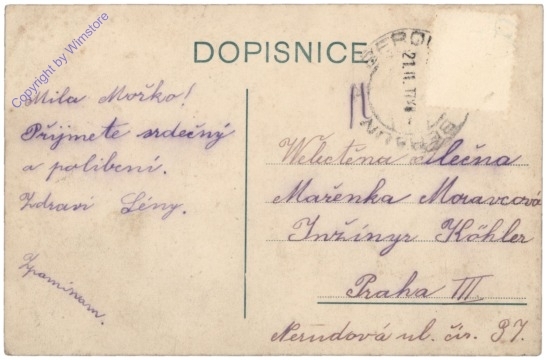 Copyright by Wimstore
DOPISNICE
21.II.
Milá Mořko!
Přijmete srdečný
a políbení.
Zdraví Lény.
Zpomínam.
Wectěna slečna
Mařenka Moravcová
Inžínyr Köhler
Praha III
Nerudová ul. čís. 37.